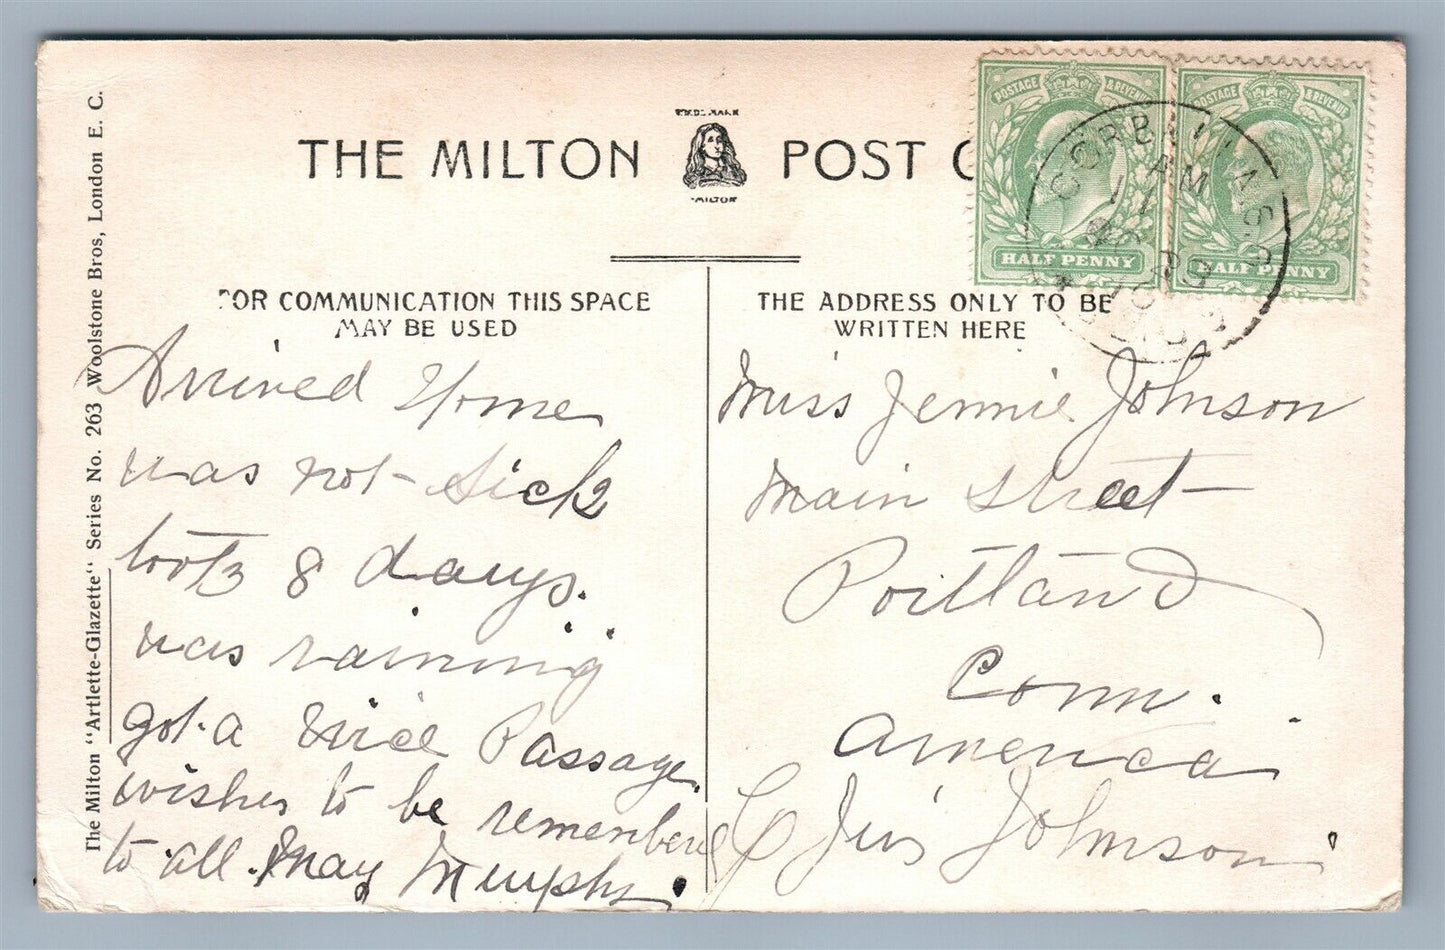 THE MILTON POST C
MILTON
FOR COMMUNICATION THIS SPACE
MAY BE USED
THE ADDRESS ONLY TO BE
WRITTEN HERE
POSTAGE & REVENUE
HALF PENNY
POSTAGE & REVENUE
HALF PENNY
AM
11
The Milton "Artlette-Glazette" Series No. 263 Woolstone Bros, London E. C.
Arrived Home
was not sick
took 8 days.
was raining
got a nice Passage
wishes to be remembered
to all. May Murphy.
Miss Jennie Johnson
Main Street
Portland
Conn.
America
Johnson